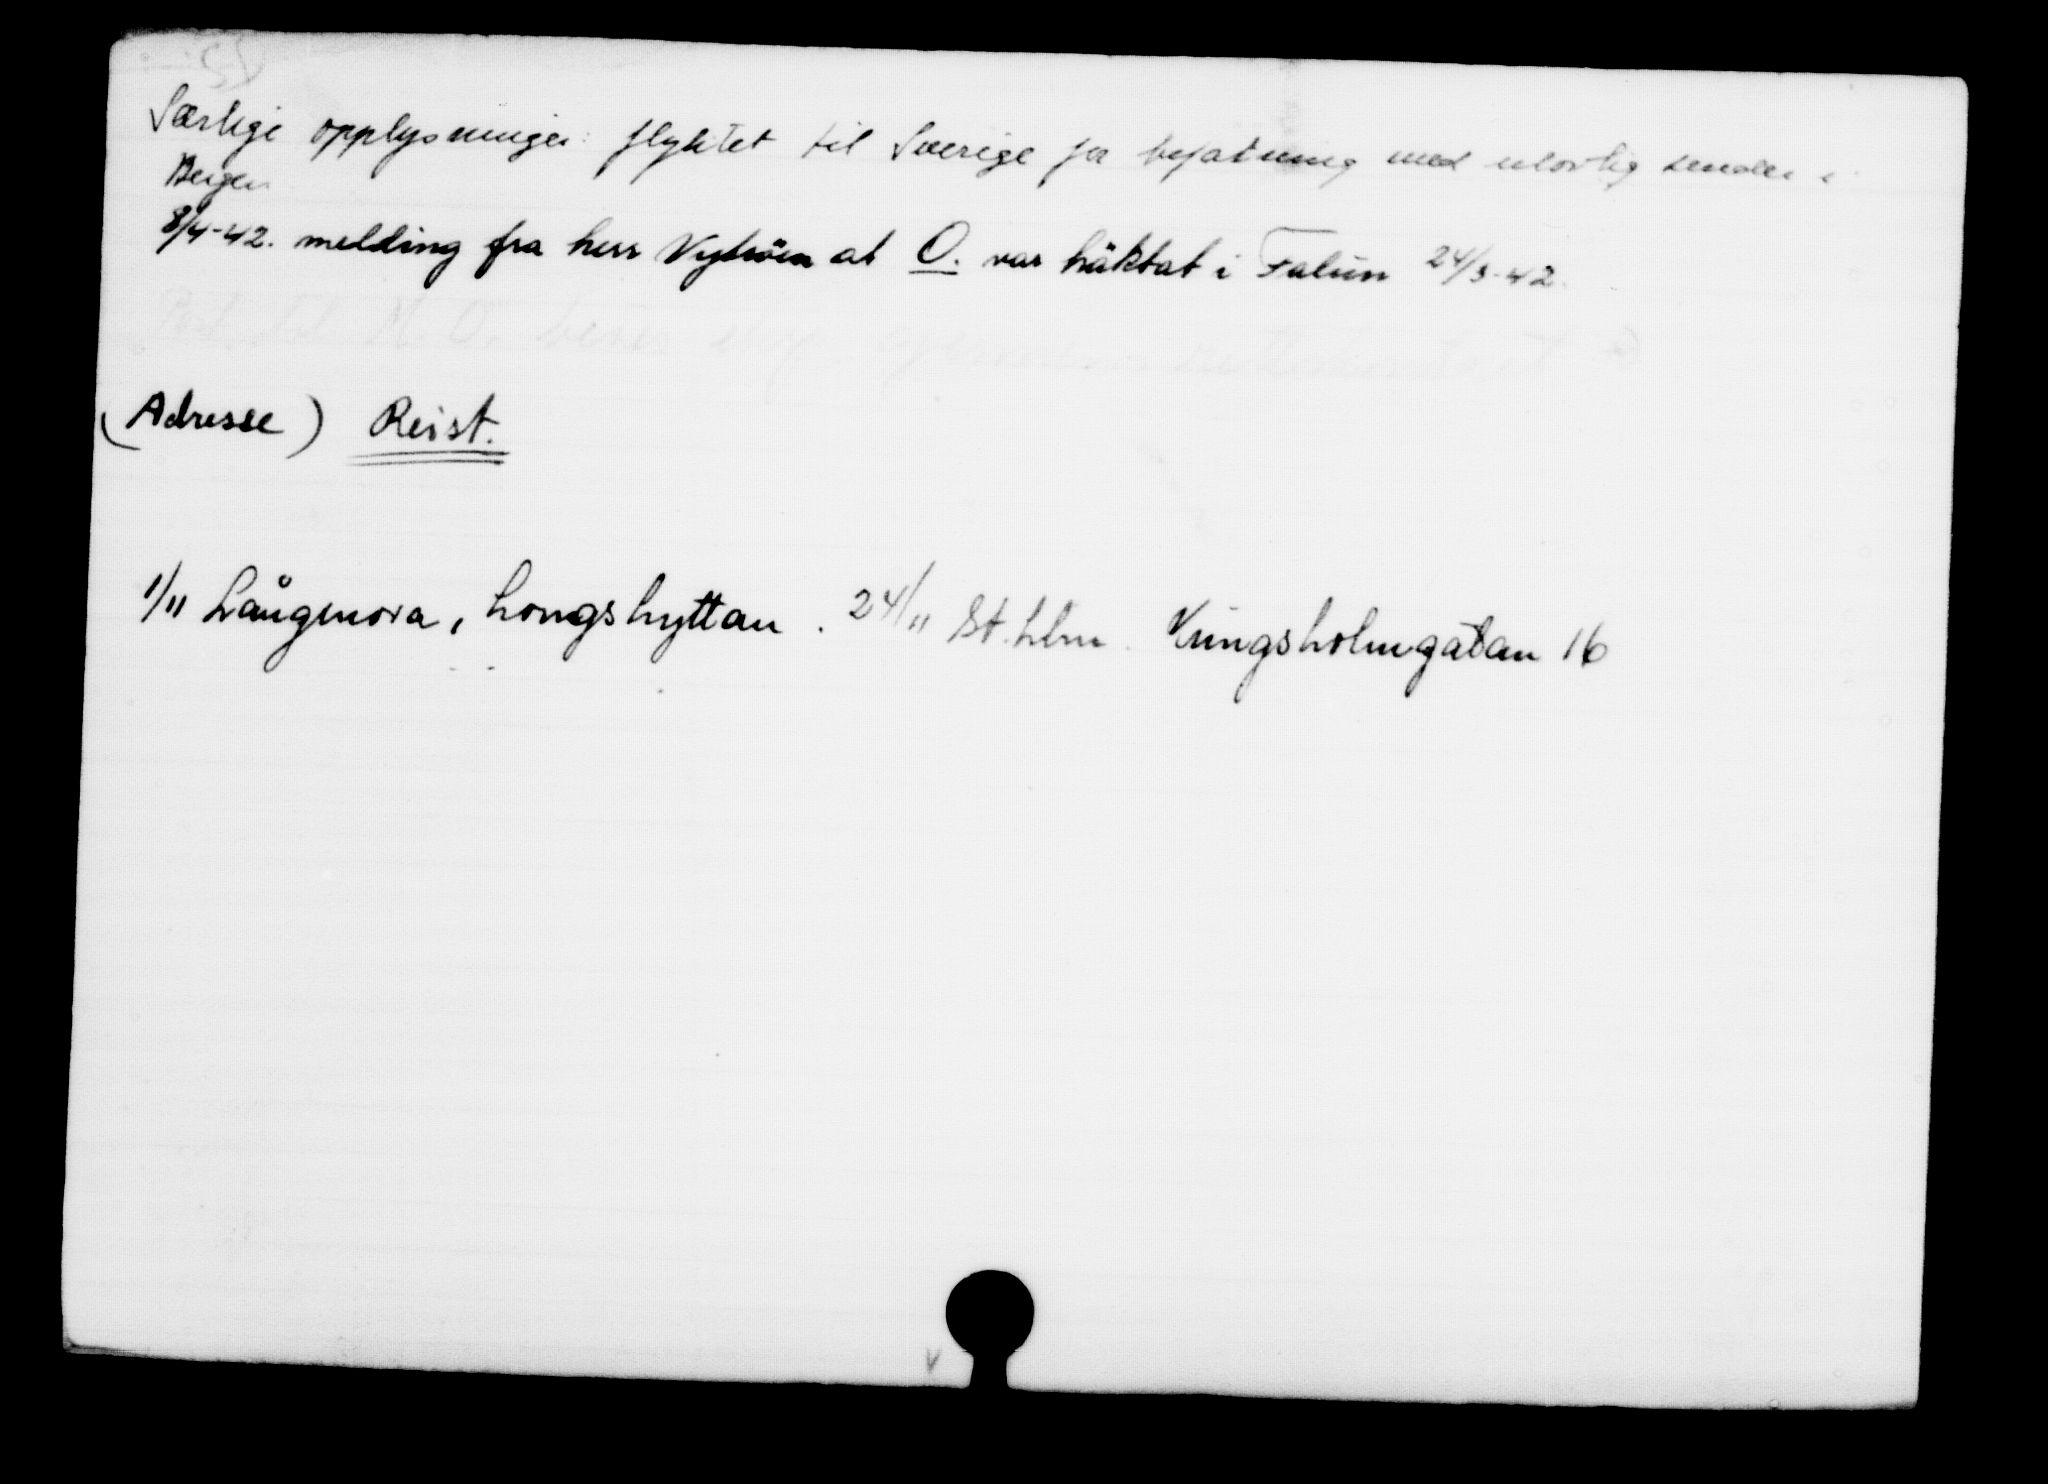 Særlige opplysninger: flyktet til Sverige for befatning med ulovlig sender i
Bergen
8/4-42. melding fra herr Nyström at O. var häktat i Falun 24/3-42.
(Adresse) Reist.
1/11 Långmora, Longshyttan. 24/11 St.hlm. Kungsholmgatan 16